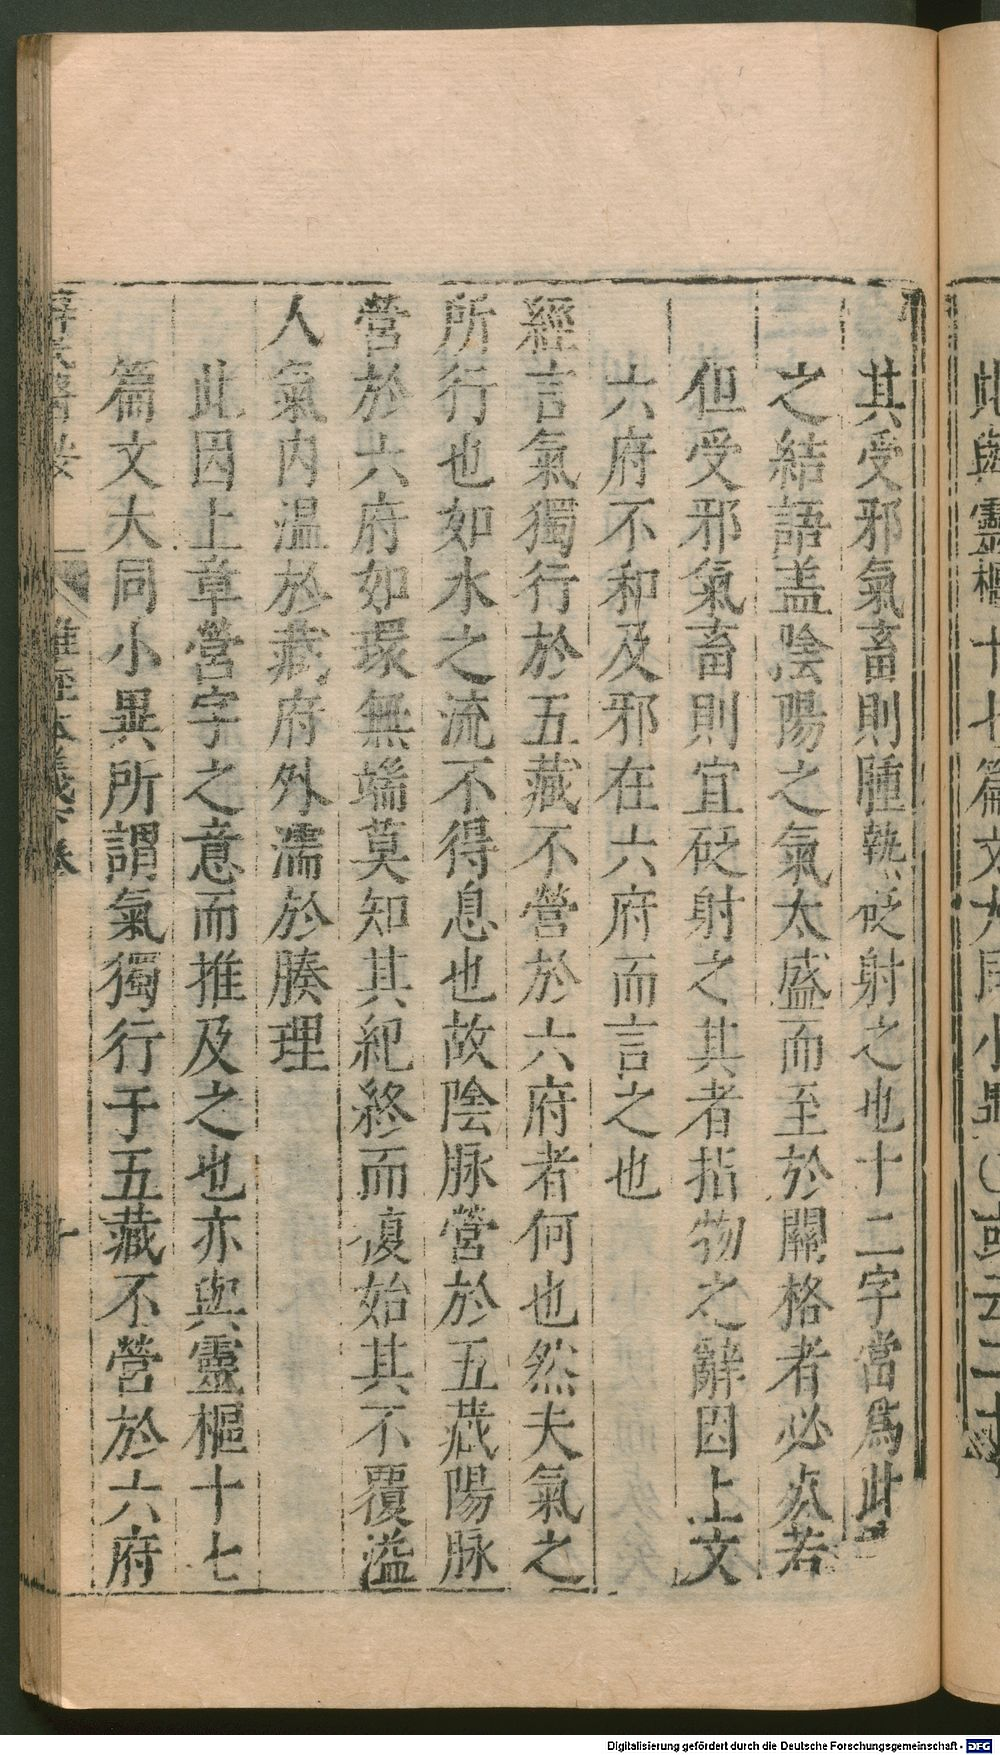 其受邪氣畜則腫熱砭射之也十二字當為此
之結語盖陰陽之氣太盛而至於關格者必死若
但受邪氣畜則宜砭射之其者指物之辭因上文
六府不和及邪在六府而言之也
經言氣獨行於五藏不營於六府者何也然夫氣之
所行也如水之流不得息也故陰脉營於五藏陽脉
營於六府如環無端莫知其紀終而復始其不覆溢
人氣内温於藏府外濡於腠理
此因上章營字之意而推及之也亦與靈樞十七
篇文大同小異所謂氣獨行于五藏不營於六府
難經本義下卷
Digitalisierung gefördert durch die Deutsche Forschungsgemeinschaft - DFG